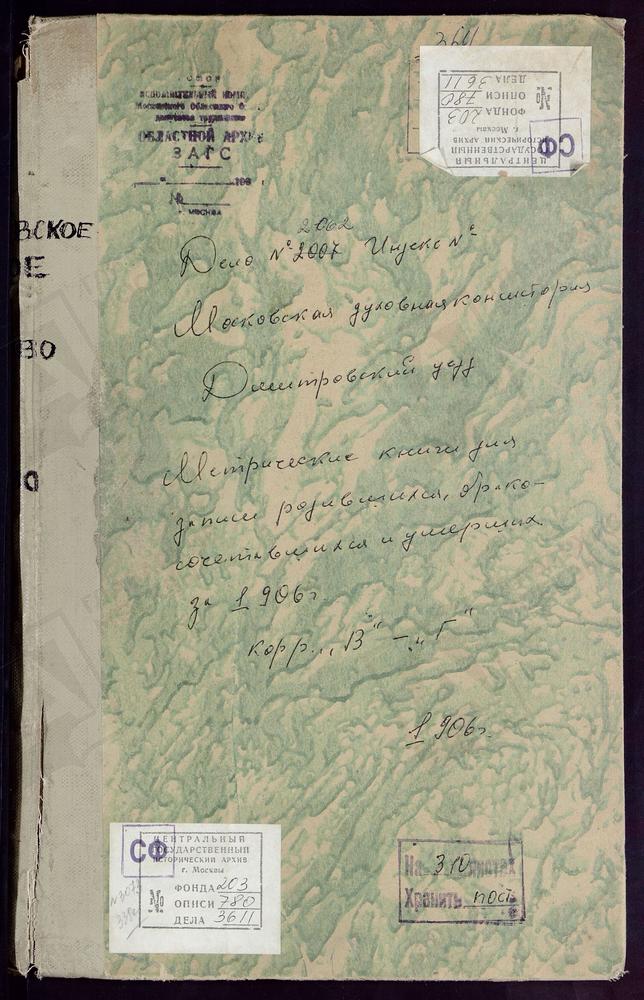 ИСПОЛНИТЕЛЬНЫЙ
Московского Областного
депутатов трудящихся
ОБЛАСТНОЙ АРХИВ
ЗАГС
№
г. МОСКВА
ЦЕНТРАЛЬНЫЙ
ГОСУДАРСТВЕННЫЙ
ИСТОРИЧЕСКИЙ АРХИВ
г. Москвы
№
ФОНДА 203
ОПИСИ 780
ДЕЛА 3611
СФ
ВСКОЕ
Е
ВО
О
2062
Дело № 2007 Индекс №
Московская духовная консистория
Дмитровский уезд
Метрические книги для
записи родившихся, брако-
сочетавшихся и умерших
за 1906г.
корр. „В" – „Г"
1906г.
СФ
ЦЕНТРАЛЬНЫЙ
ГОСУДАРСТВЕННЫЙ
ИСТОРИЧЕСКИЙ АРХИВ
г. Москвы
№
ФОНДА 203
ОПИСИ 780
ДЕЛА 3611
На листах
Хранить пост